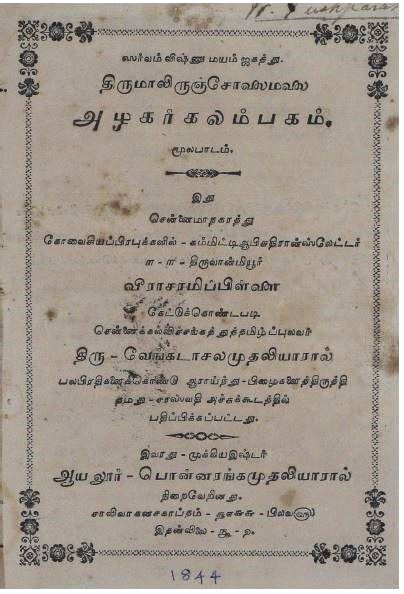 ஸர்வம் விஷ்ணு மயம் ஜகத்து.
திருமாலிருஞ்சோலைமலை
அழகர்கலம்பகம்.
மூலபாடம்.
இது
சென்னைமாநகரத்து
கோவைசியப்பிரபுக்களில் - கம்மிட்டி ஆபிசுதிரான்ஸ்லேட்டர்
ளா - ளா - திருவான்மியூர்
வீராசாமிப்பிள்ளை
கேட்டுக்கொண்டபடி
சென்னைக்கல்விச்சங்கத்துத்தமிழ்ப்புலவர்
திரு - வேங்கடாசலமுதலியாரால்
பலபிரதிகளைக்கொண்டு ஆராய்ந்து - பிழைகளைத்திருத்தி
தமது - சரஸ்வதி அச்சுக்கூடத்தில்
பதிப்பிக்கப்பட்டது.
இவரது - முக்கியஇஷ்டர்
ஆயலூர் - பொன்னரங்கமுதலியாரால்
நிறைவேறினது.
சாலிவாகனசகாப்தம் -
இதன்விலை - ரூ -
1844